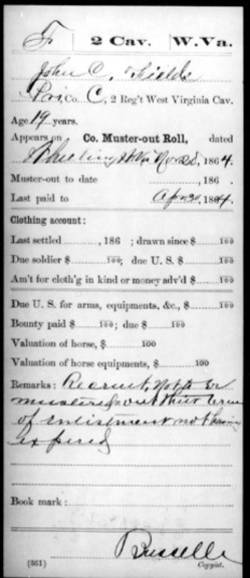 F | 2 Cav. | W.Va.
John C. Fields
Pvt, Co. C, 2 Reg't West Virginia Cav.
Age 19 years.
Appears on Co. Muster-out Roll, dated
Wheeling W.Va. Nov 28, 1864.
Muster-out to date , 186 .
Last paid to 1864.
Clothing account:
Last settled , 186 ; drawn since $ 100
Due soldier $ 100; due U. S. $ 100
Am't for cloth'g in kind or money adv'd $ 100
Due U. S. for arms, equipments, &c., $ 100
Bounty paid $ 100; due $ 100
Valuation of horse, $ 100
Valuation of horse equipments, $ 100
Remarks: Recruit, not to be
mustered out their term
of enlistment not having
expired
Book mark:
Russell
(361) Copyist.